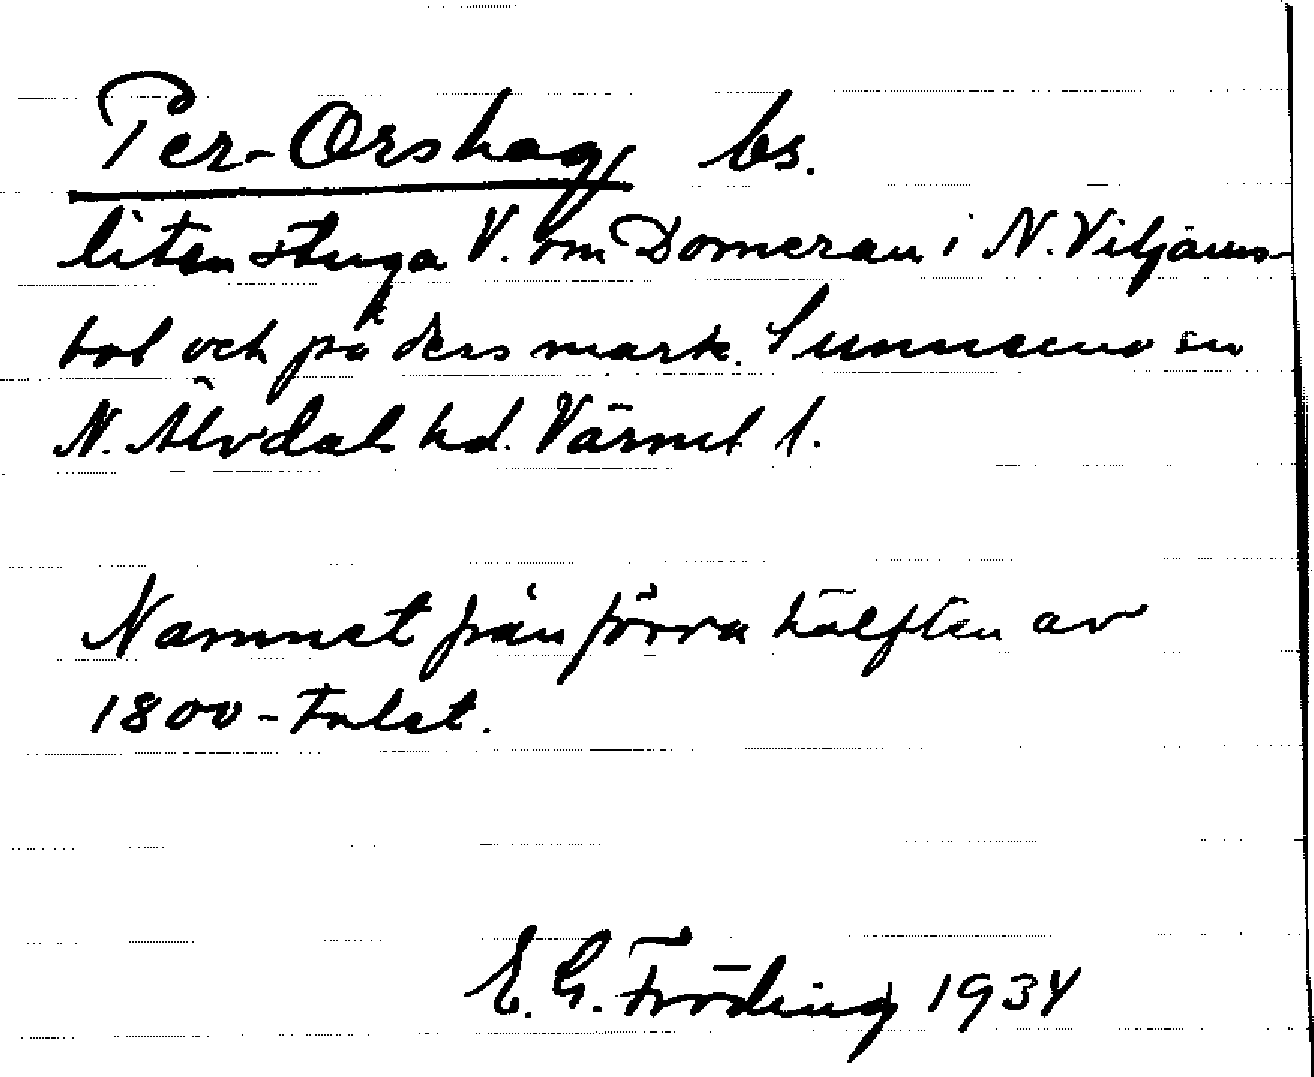 Per-Orshag bs.
liten stuga V. om Domeran i N. Viljams-
bol och på ders mark. Sunnemo sn
N. Älvdals hd. Värml l.
Namnet från förra hälften av
1800-talet.
E. G. Fröding 1934